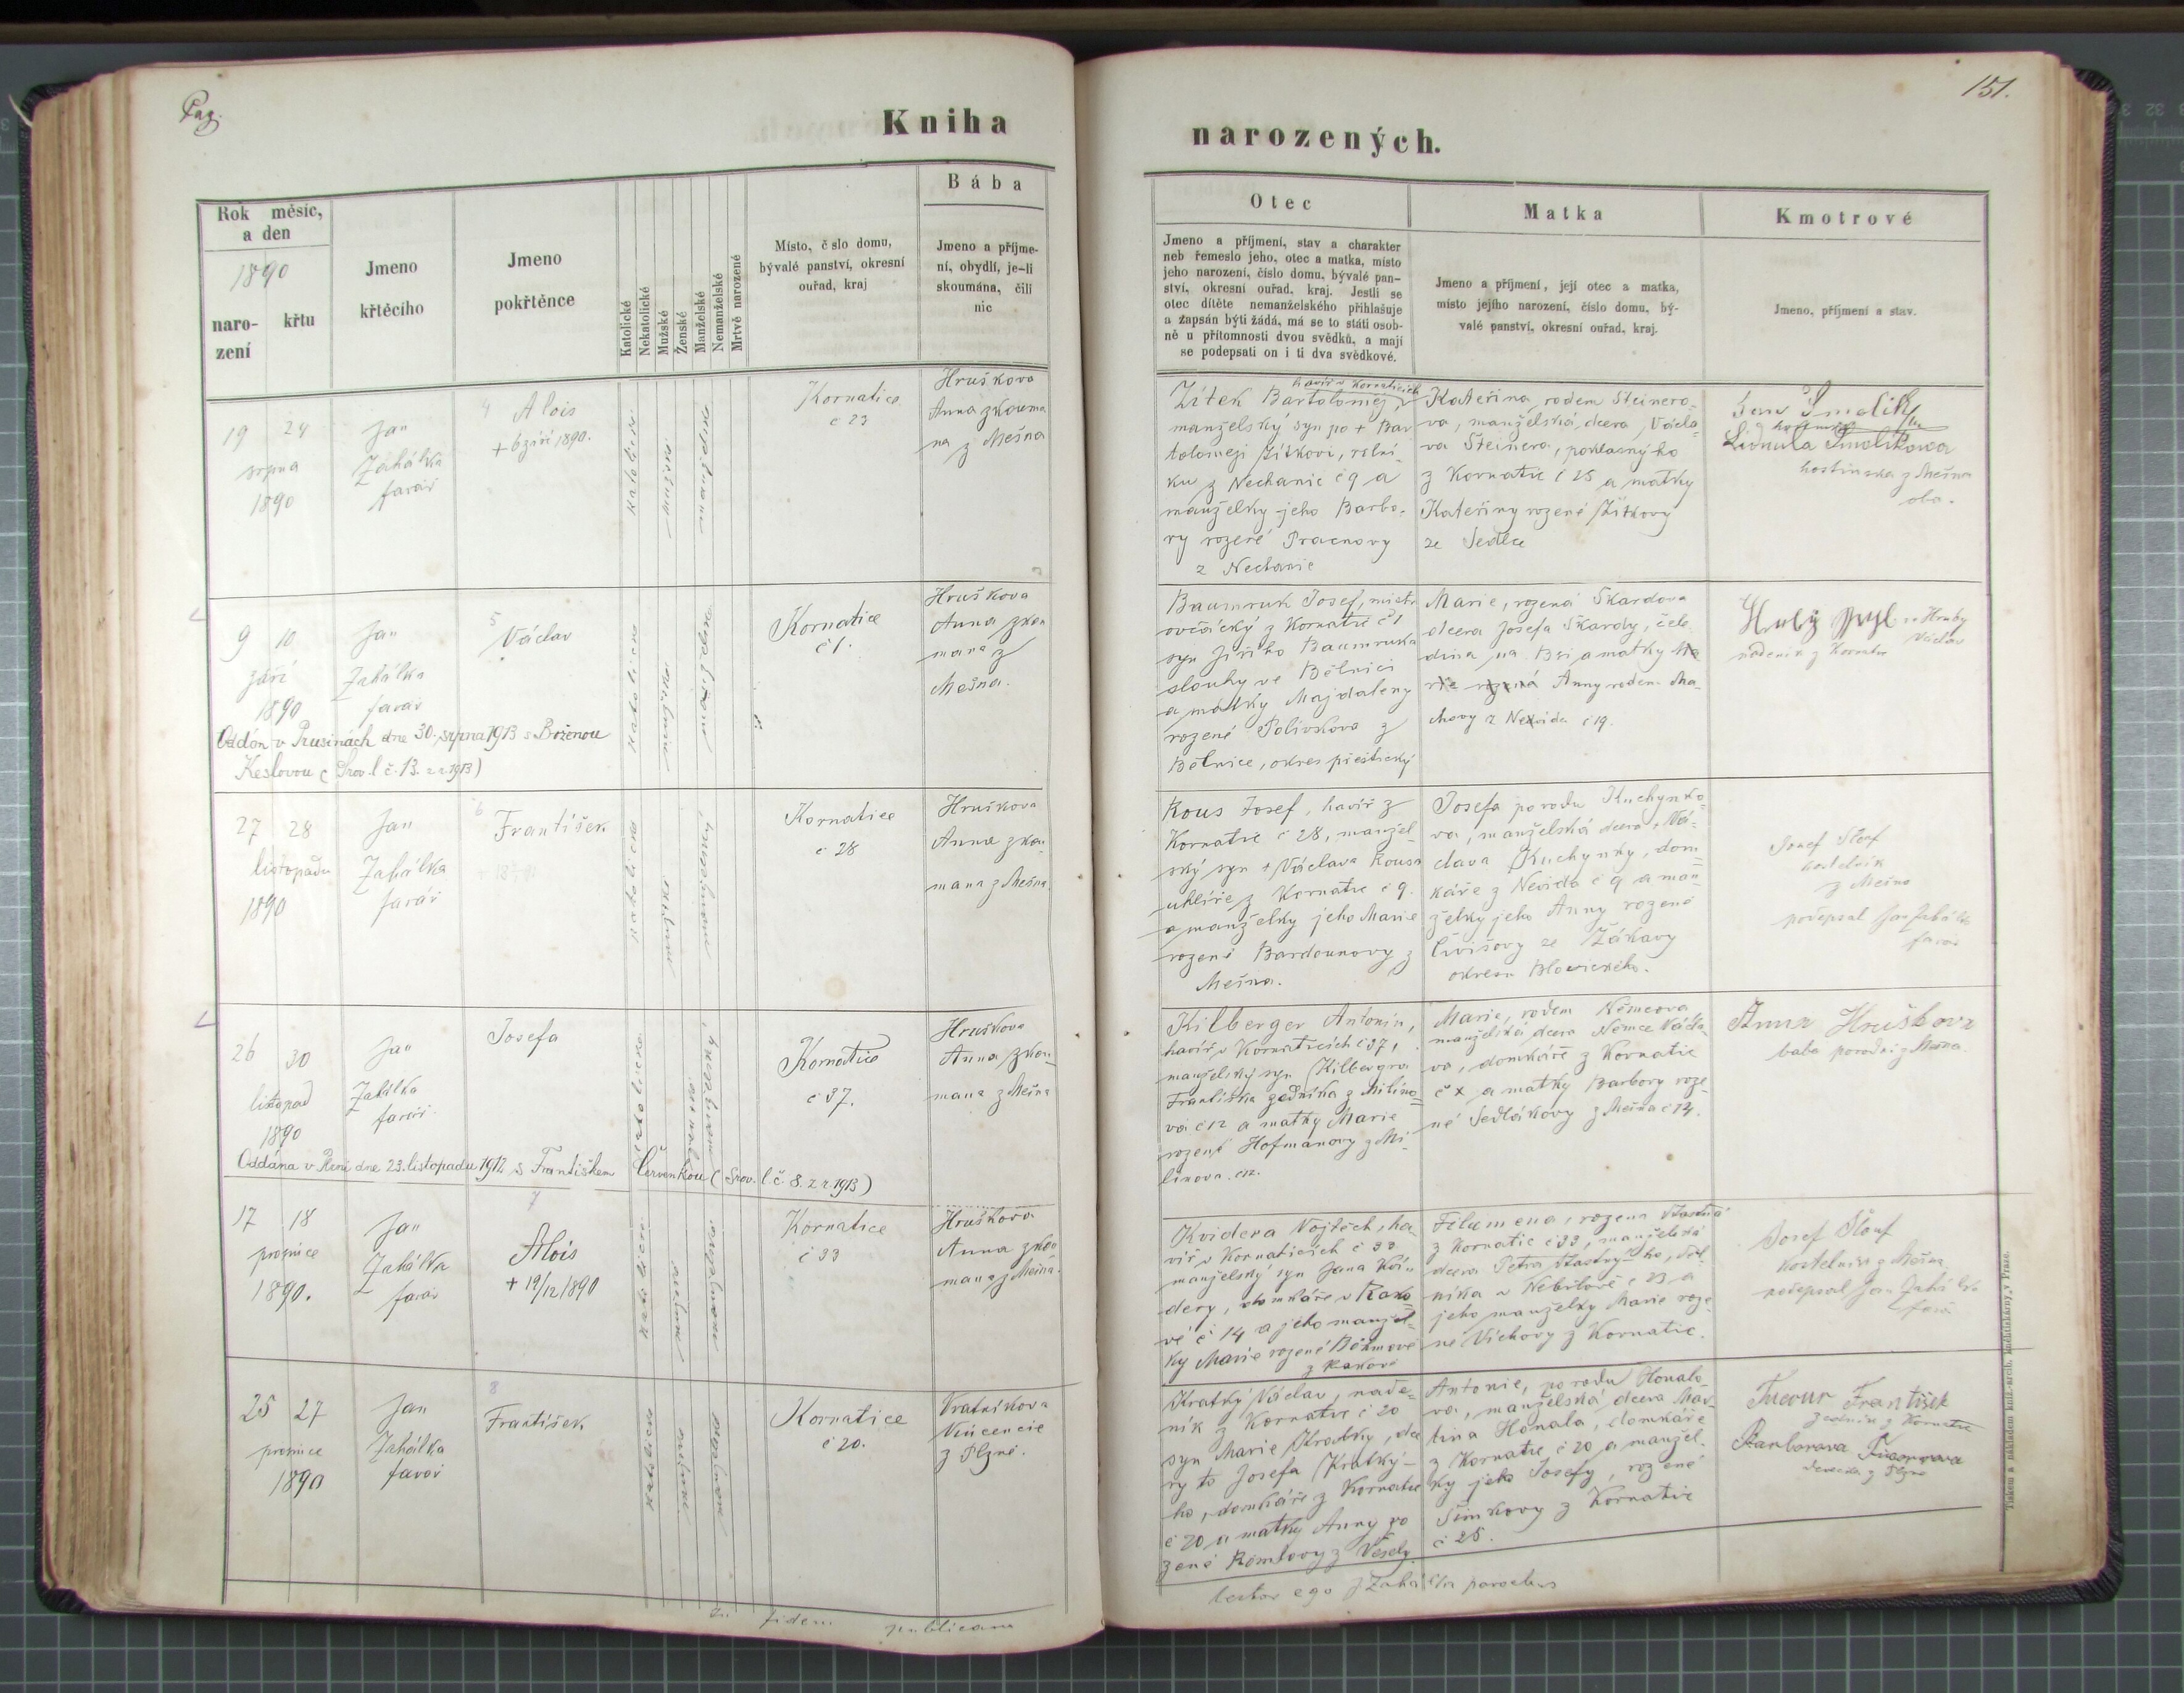 Pag.
151.
Kniha
narozených.
Rok měsíc,
a den
1890
naro-
zení
křtu
Jmeno
křtěcího
Jmeno
pokřtěnce
Katolické
Nekatolické
Mužské
Ženské
Manželské
Nemanželské
Mrtvě narozené
Místo, č slo domu,
bývalé panství, okresní
ouřad, kraj
Bába
Jmeno a příjme-
ní, obydlí, je-li
skoumána, čili
nic
Otec
Jmeno a příjmení, stav a charakter
neb řemeslo jeho, otec a matka, místo
jeho narození, číslo domu, bývalé pan-
ství, okresní ouřad, kraj. Jestli se
otec dítěte nemanželského přihlašuje
a zapsán býti žádá, má se to státi osob-
ně u přítomnosti dvou svědků, a mají
se podepsati on i ti dva svědkové.
Matka
Jmeno a příjmení, její otec a matka,
místo jejího narození, číslo domu, bý-
valé panství, okresní ouřad, kraj.
Kmotrové
Jmeno, příjmení a stav.
19 24
srpna
1890
Jan
Zahálka
farář
4 Alois
+ 6 září 1890.
Kornatice
č 23
Hruškova
Anna zkouma
na z Mešna
havíř v Kornaticích
Zítek Bartoloměj,
manželský syn po + Bar
toloměji Zítkovi, rolní-
ku z Nechanic č 9 a
manželky jeho Barbo-
ry rozené
z Nechanic
Kateřina, rodem Steinero-
va, manželská dcera, Václa-
va Steinera, poklasného
z Kornatic č 25 a matky
Kateřiny rozené Zítkovy
ze Sedlce
Jan Smolík
Lidmila Smolíkova
hostinská z Mešna
oba.
9 10
září
1890
Jan
Zahálka
farář
5
Václav
Kornatice
č 1.
Hruškova
Anna zkou
mana z
Mešna.
Baumruk Josef, mistr
ovčácký z Kornatic č 1
syn Jiřího Baumruka
slouhy ve Bělnici
a matky Majdaleny
rozené Polívkova z
Bělnice, okres přeštický
Marie, rozená Škardova
dcera Josefa Škardy, čele
dína na Bzí a matky
Anny rodem Ma-
chovy z Nevida č 19.
Hrubý
Hruby
Václav
nádeník z Kornatic
Oddán v Prusinách dne 30. srpna 1913 s Boženou
Keslovou (Srov. l č. 13. z r. 1913)
27 28
listopadu
1890
Jan
Zahálka
farář
6
František
Kornatice
č 28
Hruškova
Anna zkou
mana z Mešna
Rous Josef, havíř z
Kornatic č 28, manžel-
ský syn + Václava Rousa
uhlíře z Kornatic č 9.
a manželky jeho Marie
rozené Bardounovy z
Mešna.
Josefa porodu Kuchynko-
va, manželská dcera + Vá-
clava Kuchynky, dom-
káře z Nevida č 9 a man-
želky jeho Anny rozené
ze Žákavy
okresu Blovického.
Josef Šlouf
kostelník
z Mešna
podepsal Jan Zahálka
farář
26 30
listopad
1890
Jan
Zahálka
farář
Josefa
Kornatice
č 37.
Hruškova
Anna zkou-
mana z Mešna
Kilberger Antonín,
havíř v Kornaticích č 37,
manželský syn Kilbergra
Františka zedníka z Milíno-
va č 12 a matky Marie
rozené Hofmanovy z Mi-
línova č 12.
Marie, rodem Němcova
manželská dcera Němce Václa-
va, domkáře z Kornatic
č x a matky Barbory roze-
né Sedlákovy z Mešna č 14.
Anna Hruškova
baba porodní z Mešna
Oddána v Plzni dne 23. listopadu 1912 s Františkem Červenkou (Srov. l č. 8. z r. 1913)
17 18
prosince
1890.
Jan
Zahálka
farář
7
Alois
+ 19/12 1890
Kornatice
č 33
Hruškova
Anna zkou
mana z Mešna.
Kvidera Vojtěch, ha
víř v Kornaticích č 33
manželský syn Jana Kvi-
dery, domkáře v Rako-
vé č 14 a jeho manžel-
ky Marie rozené Böhmové
z Rakové
Filomena, rozená Šťastná
z Kornatic č 33, manželská
dcera Petra Šťastného, rol-
níka v Nebílově č 23 a
jeho manželky Marie roze-
né Víchovy z Kornatic.
Josef Šlouf
kostelník z Mešna
podepsal Jan Zahálka
farář
25 27
prosince
1890
Jan
Zahálka
farář
8
František
Kornatice
č 20.
Vratníkova
Vincencie
z Plzně.
Kratký Václav, nade-
ník z Kornatic č 20
syn Marie Kratky, dce
ry to Josefa Kratký-
ho, domkáře z Kornatic
č 20 a matky Anny ro
zené z Veselý
Antonie, porodu Honalo-
va, manželská dcera Mar-
tina Honala, domkáře
z Kornatic č 20 a manžel-
ky jeho Josefy, rozené
Šimkovy z Kornatic
č 25.
František
zedník z Kornatic
z Plzně
In fidem publicam
testor ego J Zahálka parochus
Tiskem a nákladem kníž.-arcib. knihtiskárny v Praze.